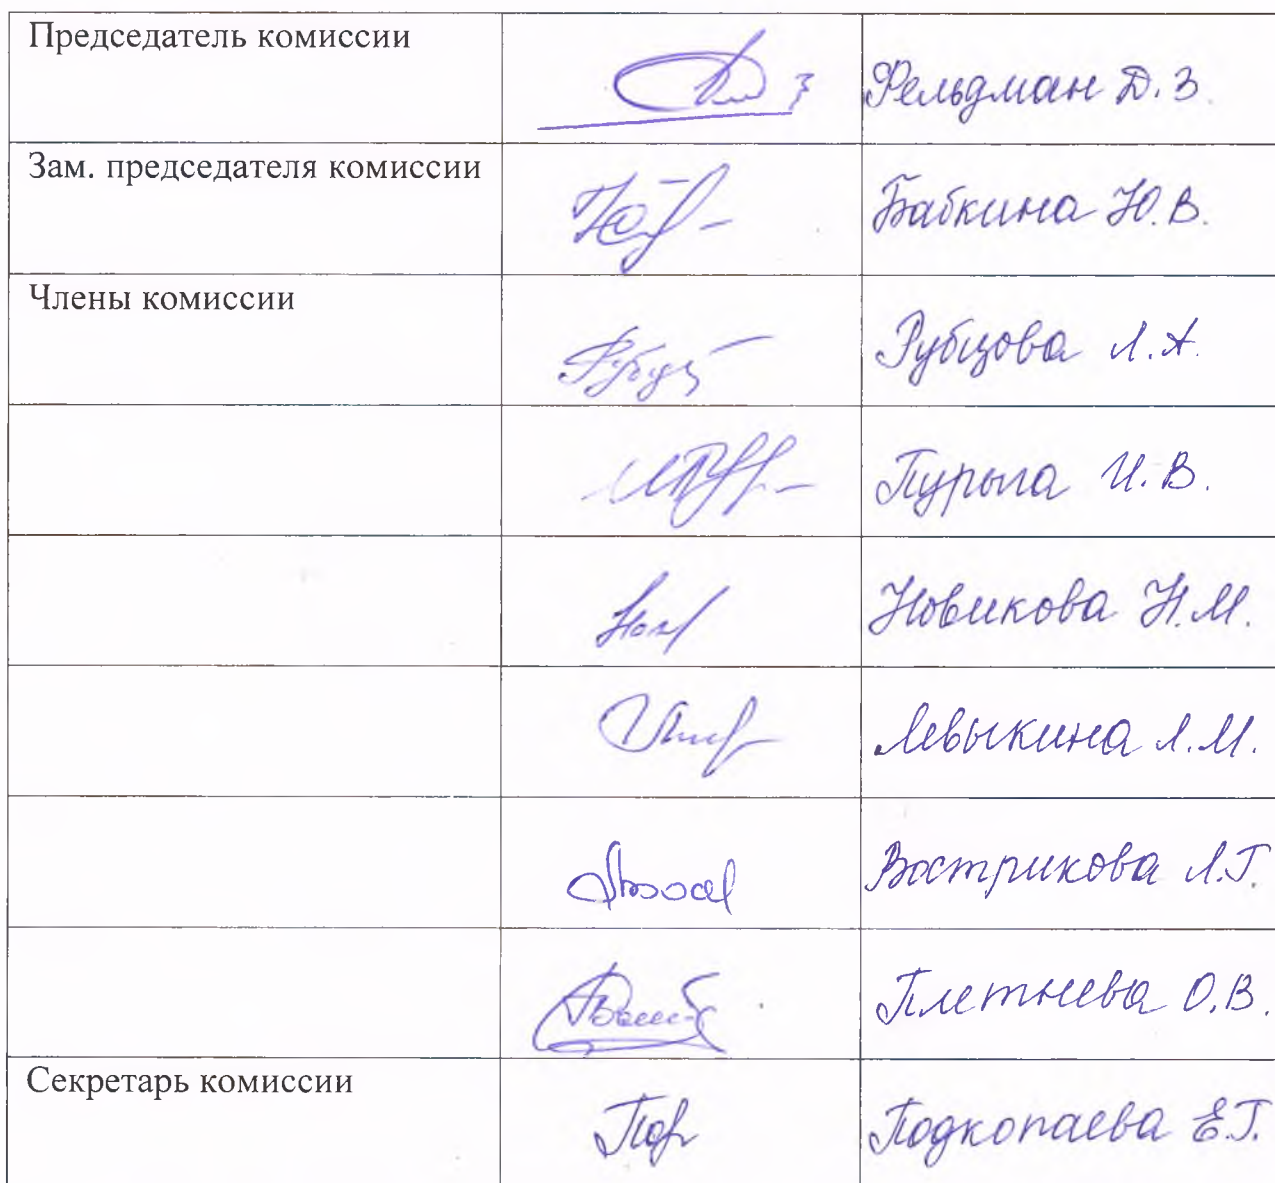 Председатель комиссии Фельдман Д. З.
Зам. председателя комиссии Бабкина Ю. В.
Члены комиссии Рубцова Л. А.
Пурыга И. В.
Новикова Н. М.
Левыкина Л. М.
Вострикова Л. Г.
Плетнева О. В.
Секретарь комиссии Подкопаева Е. Г.